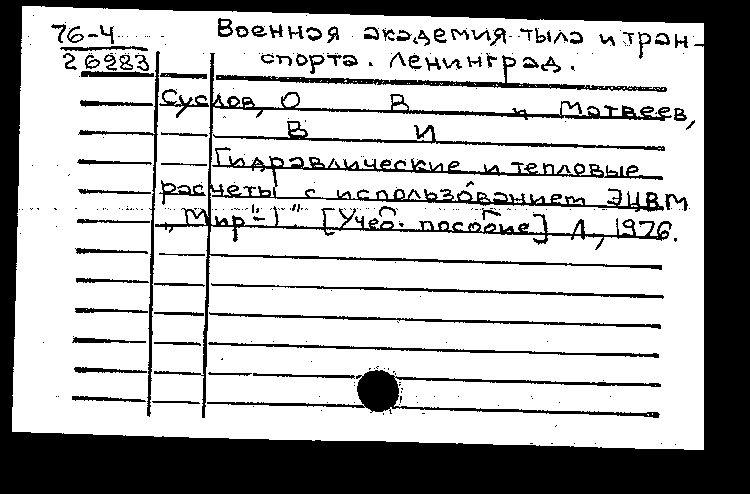 76-4
26983
Военная академия тыла и тран-
спорта. Ленинград.
Суслов, О В и Матвеев,
В И
Гидравлические и тепловые
расчеты с использованием ЭЦВМ
„Мир"-1". [Учеб. пособие] Л, 1976.